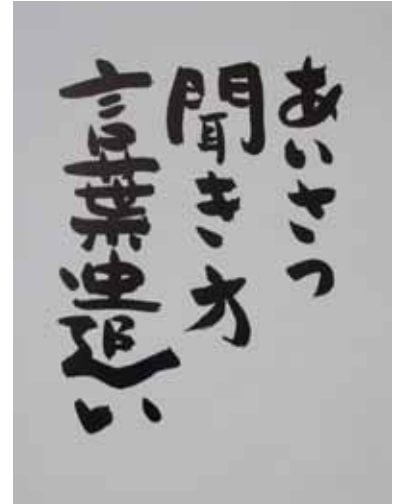 あいさつ
聞き方
言葉遣い